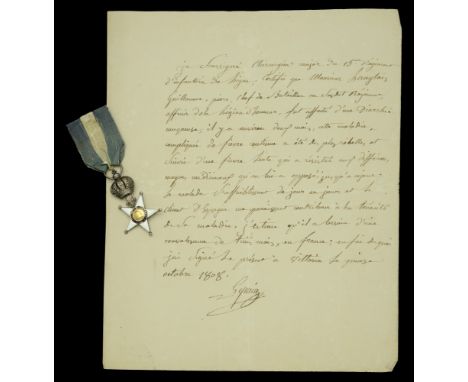 je soussigné Chirurgien major du 15e Régiment
d'infanterie de ligne, certifie que Monsieur
Guillaume, pierre, Chef de Bataillon au susdit Régiment,
officier de la Légion d'honneur, fut affecté d'une Diarrhée
il y a environ deux mois, cette maladie,
compliquée de fièvre continue a été des plus rebelles, et
suivie d'une fièvre lente qui a résisté aux différens
moyens qu'on lui a opposé jusqu'à ce jour.
le malade s'affaiblissant de jour en jour et le
Climat d'Espagne me paraissant contraire à la
de sa maladie, j'estime qu'il a besoin d'une
convalescence de trois mois, en france; en foi de quoi
j'ai signé le présent à Vittoria le quinze
octobre 1808.